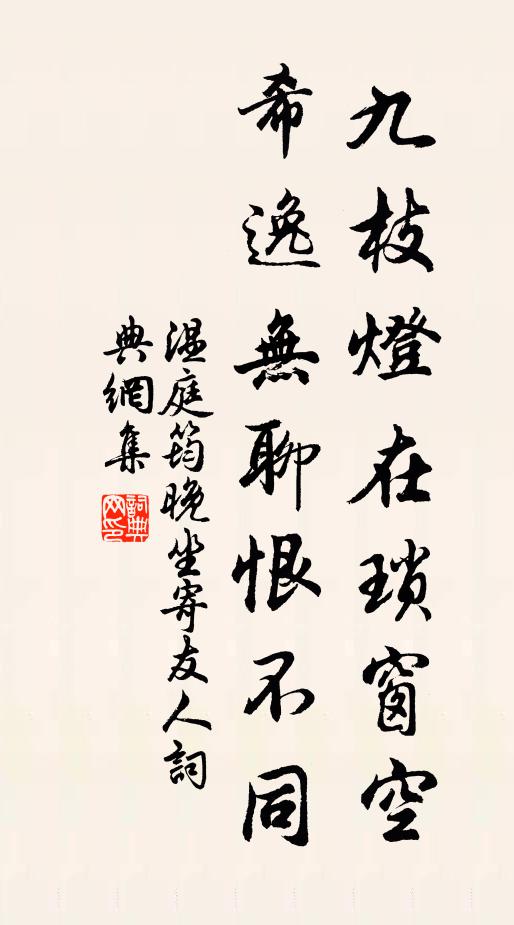 九枝燈在瑣窗空
希逸無聊恨不同
温庭筠晚坐寄友人詞
典網集
詞典網印